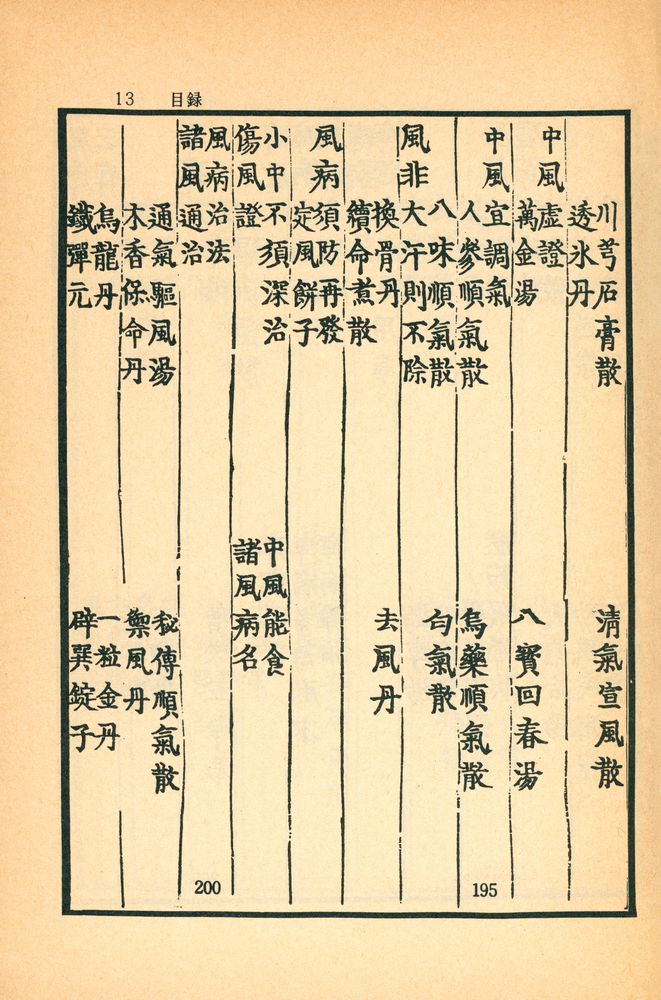 13 目録
川芎石膏散 清氣宣風散
透氷丹
中風虛證
萬金湯 八寶回春湯
中風宜調氣
人參順氣散 烏藥順氣散
195
八味順氣散 匀氣散
風非大汗則不除
換骨丹 去風丹
續命煮散
風病須防再發
定風餠子
小中不須深治 中風能食
傷風證 諸風病名
風病治法
200
諸風通治
通氣驅風湯 秘傳順氣散
木香保命丹 禦風丹
烏龍丹 一粒金丹
鐵彈元 辟巽錠子